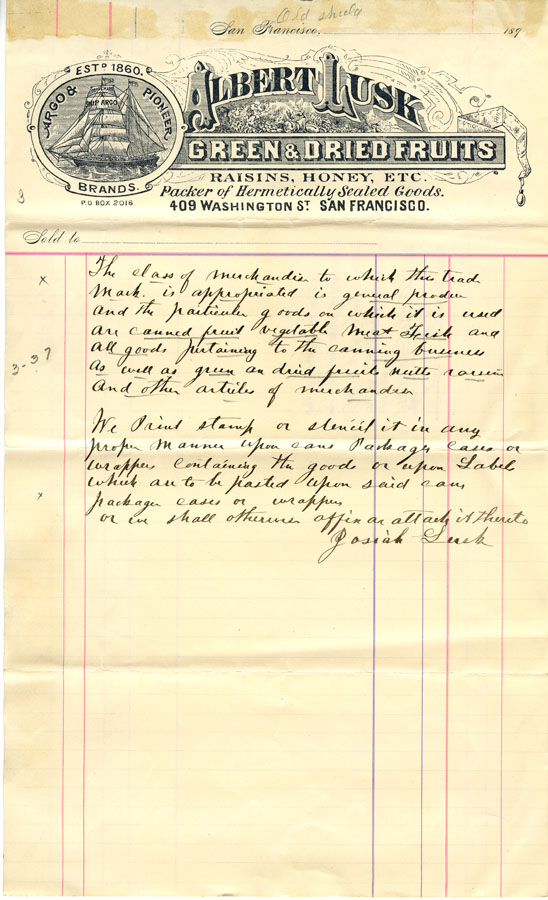 Old shield
San Francisco, 189
EST'D 1860.
ARGO & PIONEER
SHIP ARGO
BRANDS.
P.O. BOX 2016
ALBERT LUSK
GREEN & DRIED FRUITS
RAISINS, HONEY, ETC.
Packer of Hermetically Sealed Goods.
409 WASHINGTON ST. SAN FRANCISCO.
3
Sold to
x
The class of merchandise to which this trade
Mark. is appropriated is general produce
And the particular goods on which it is used
are canned fruit vegetable Meat Fish and
all goods pertaining to the canning business
3-37
As well as green an dried fruits nutts raisins
And other articles of merchandise
We Print stamp or stencil it in any
proper Manner upon cans Packages cases or
wrappers Containing the goods or upon Labels
which are to be pasted upon said cans
x
packages cases or wrappers
or we shall otherwise affix or attach it thereto
Josiah Lusk